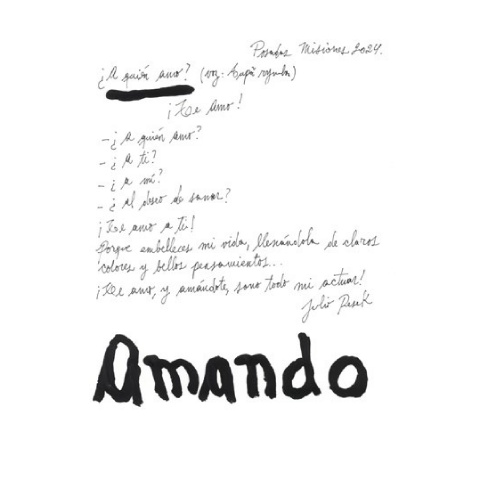 Posadas Misiones 2024.
¿A quién amo? (voz: Capá
¡Te amo!
-¿A quién amo?
-¿A ti?
-¿a mí?
-¿Al deseo de sanar?
¡Te amo a ti!
Porque embelleces mi vida, llenándola de claros
colores y bellos pensamientos...
¡Te amo, y amándote, sano todo mi actuar!
Julio
Amando